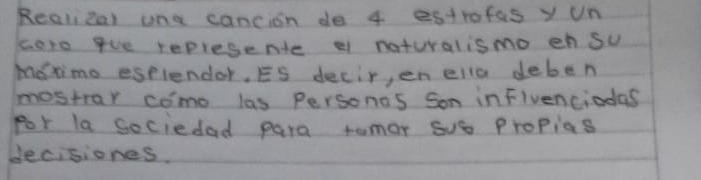 Realizar una canción de 4 estrofas y un
coro que represente el naturalismo en su
máximo esplendor. ES decir, en ella deben
mostrar cómo las Personas son influenciadas
por la sociedad para tomar sus propias
decisiones.